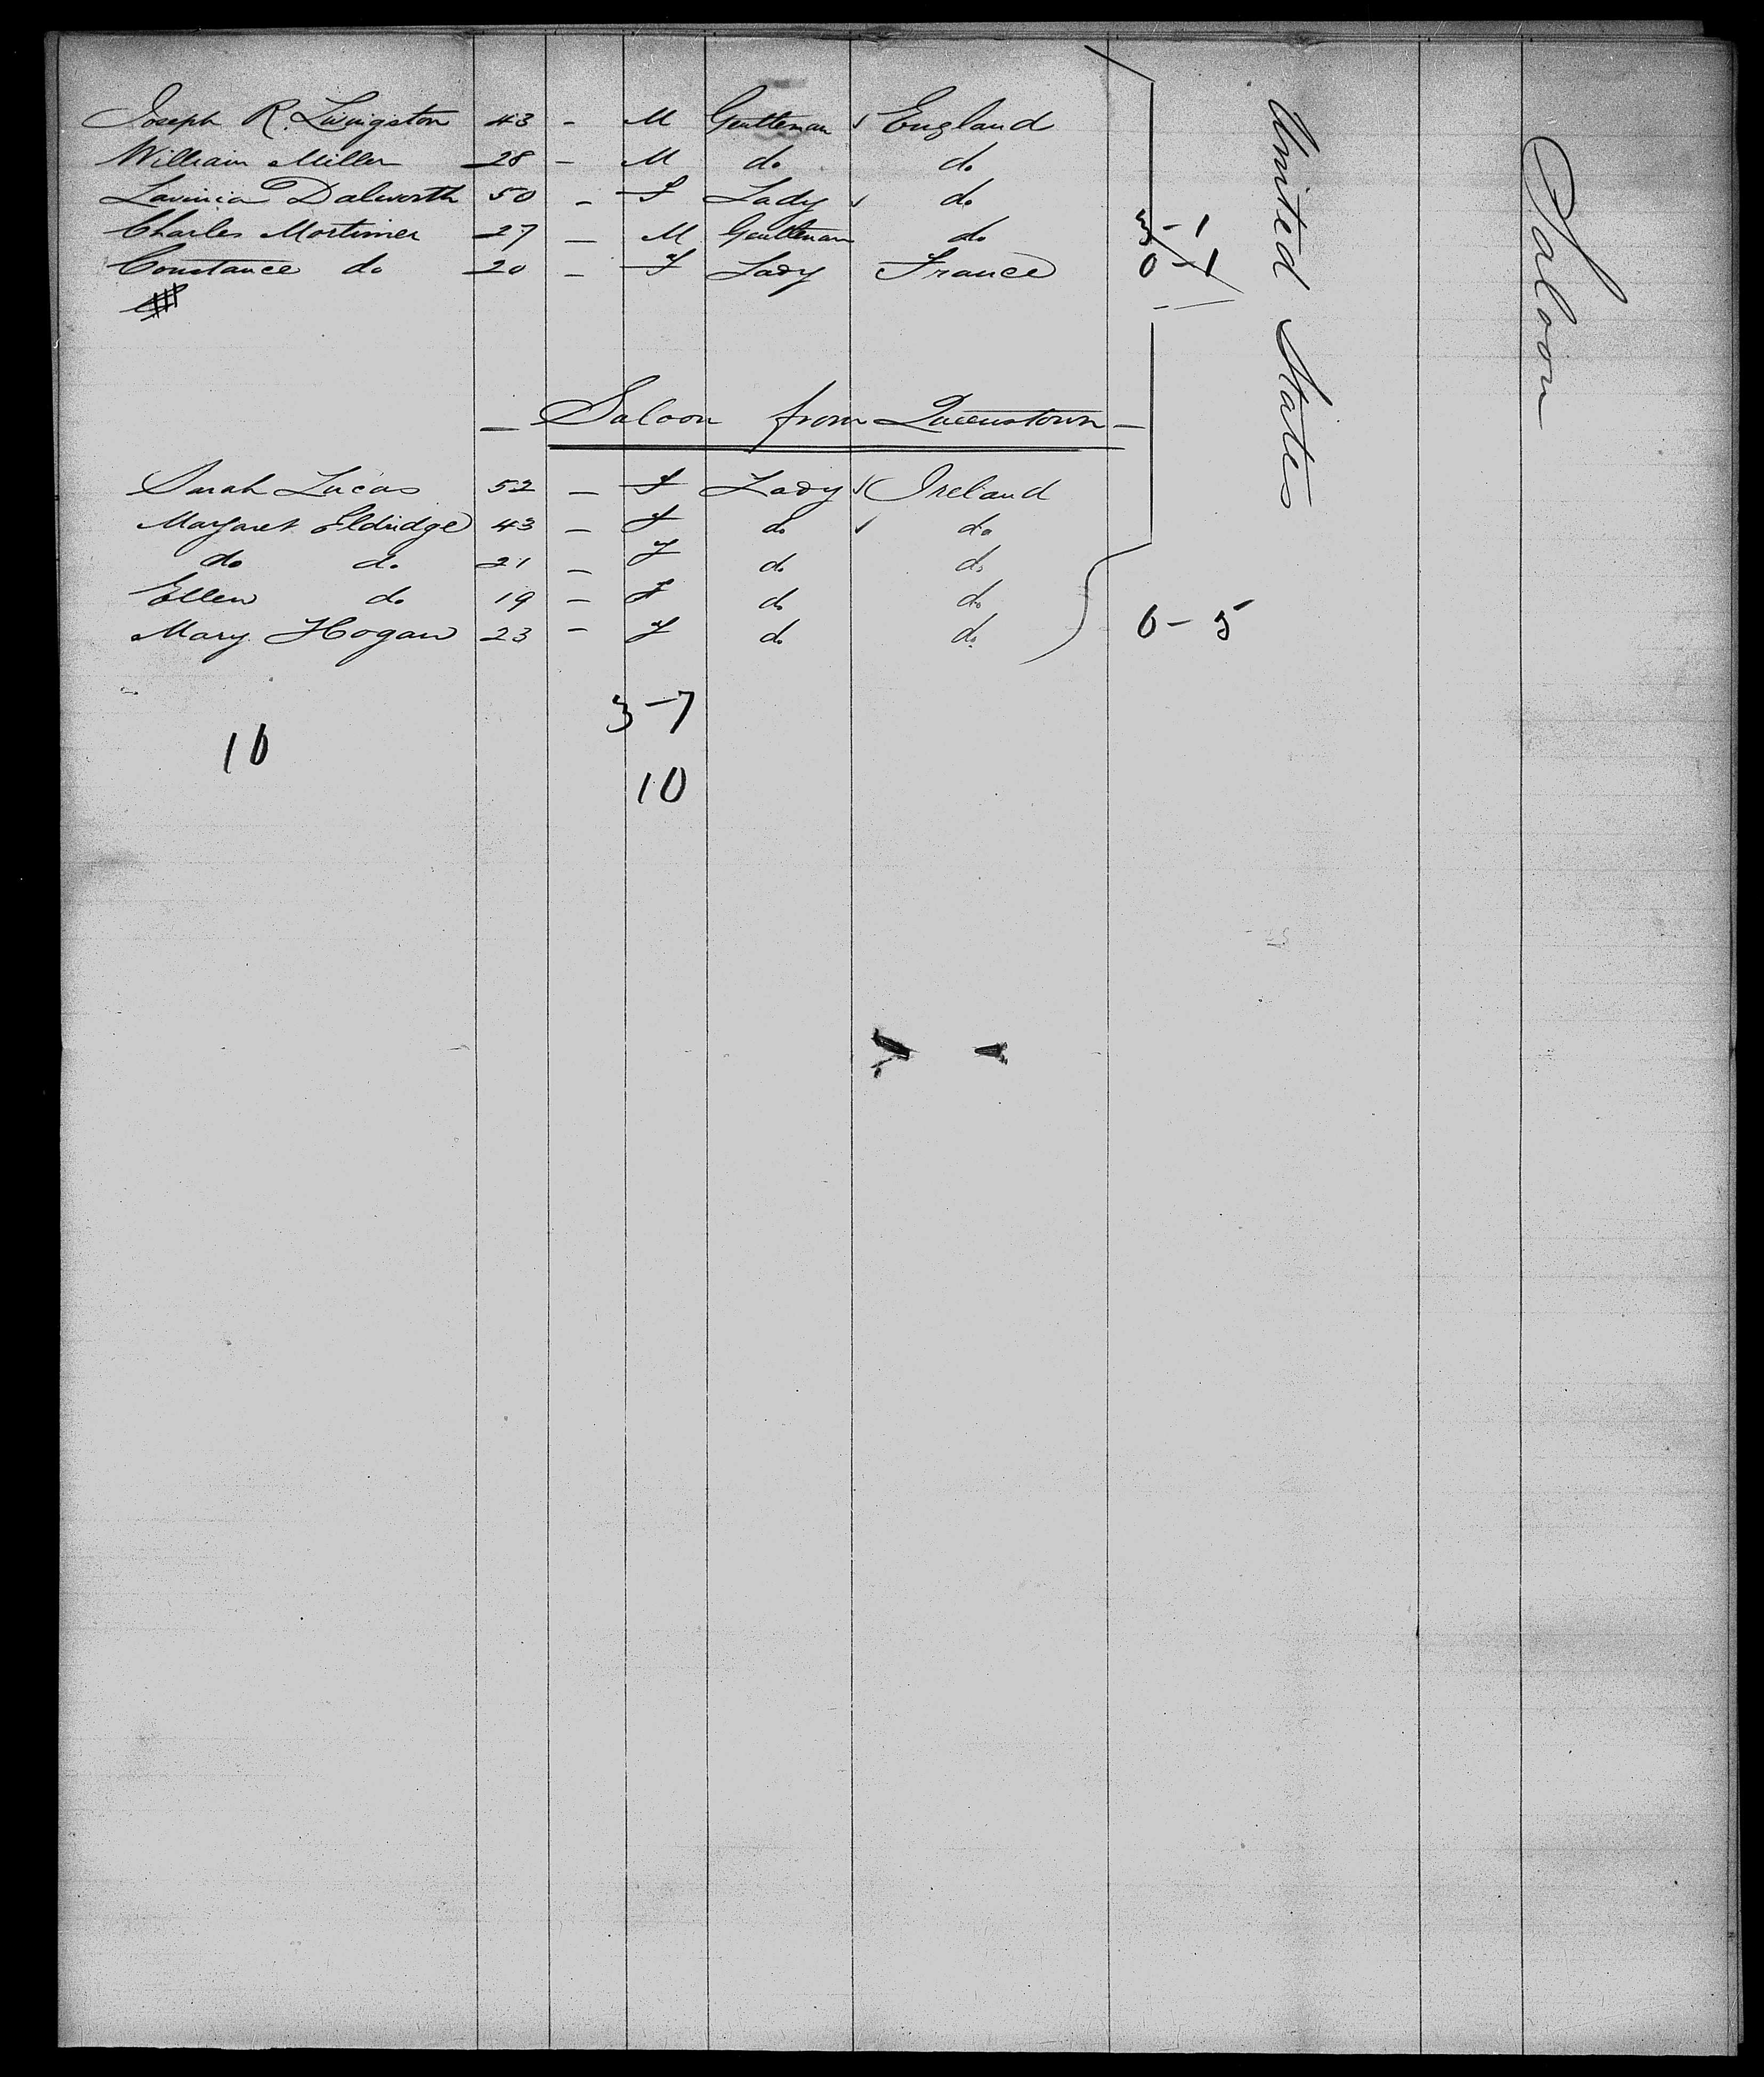 Joseph R. Livingston 43 - M Gentleman ✓ England
William Miller 28 - M do do
Lavinia Dalworth 50 - F Lady ✓ do
Charles Mortimer 27 - M Gentleman do 3-1
Constance do 20 - F Lady France 0-1
- Saloon from Queenstown -
Sarah Lucas 52 - F Lady ✓ Ireland
Margaret Eldridge 43 - F do ✓ do
do do 21 - F do do
Ellen do 19 - F do do
Mary Hogan 23 - F do do 0-5
3-7
10
10
United States
Saloon